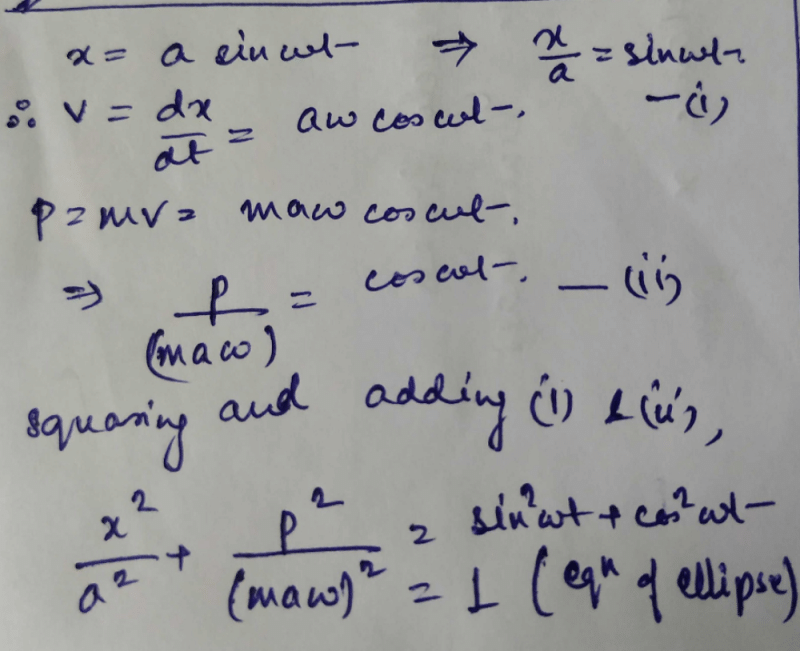 x = a sin ωt ⇒ x/a = sin ωt. —(i)
∴ v = dx/dt = aω cos ωt.
p = mv = maω cos ωt.
⇒ p/(maω) = cos ωt. —(ii)
squaring and adding (i) & (ii),
x²/a² + p²/(maω)² = sin²ωt + cos²ωt
= 1 (eqⁿ of ellipse)